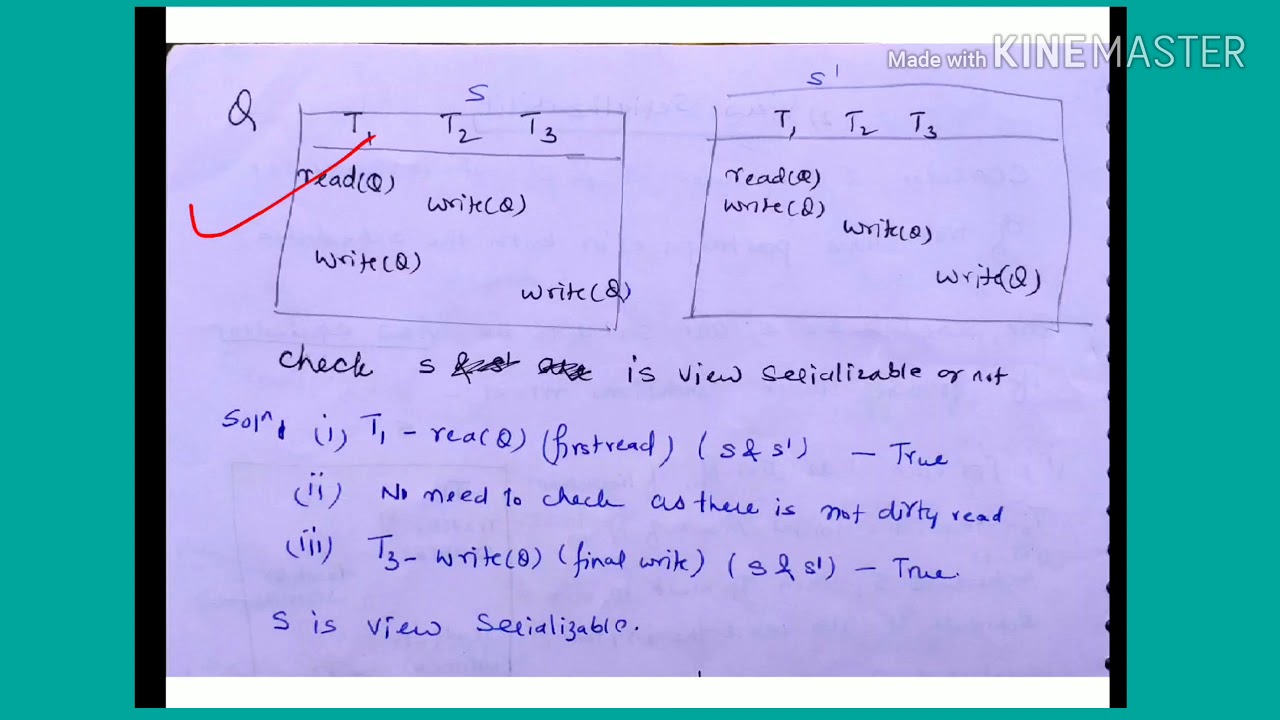 Made with KINEMASTER
Q
S
T1 T2 T3
read(Q)
write(Q)
write(Q)
write(Q)
S'
T1 T2 T3
read(Q)
write(Q)
write(Q)
write(Q)
check S is view serializable or not
Solⁿ: (i) T1 - rea(Q) (first read) (S & S') - True
(ii) No need to check as there is not dirty read
(iii) T3 - write(Q) (final write) (S & S') - True.
S is view serializable.